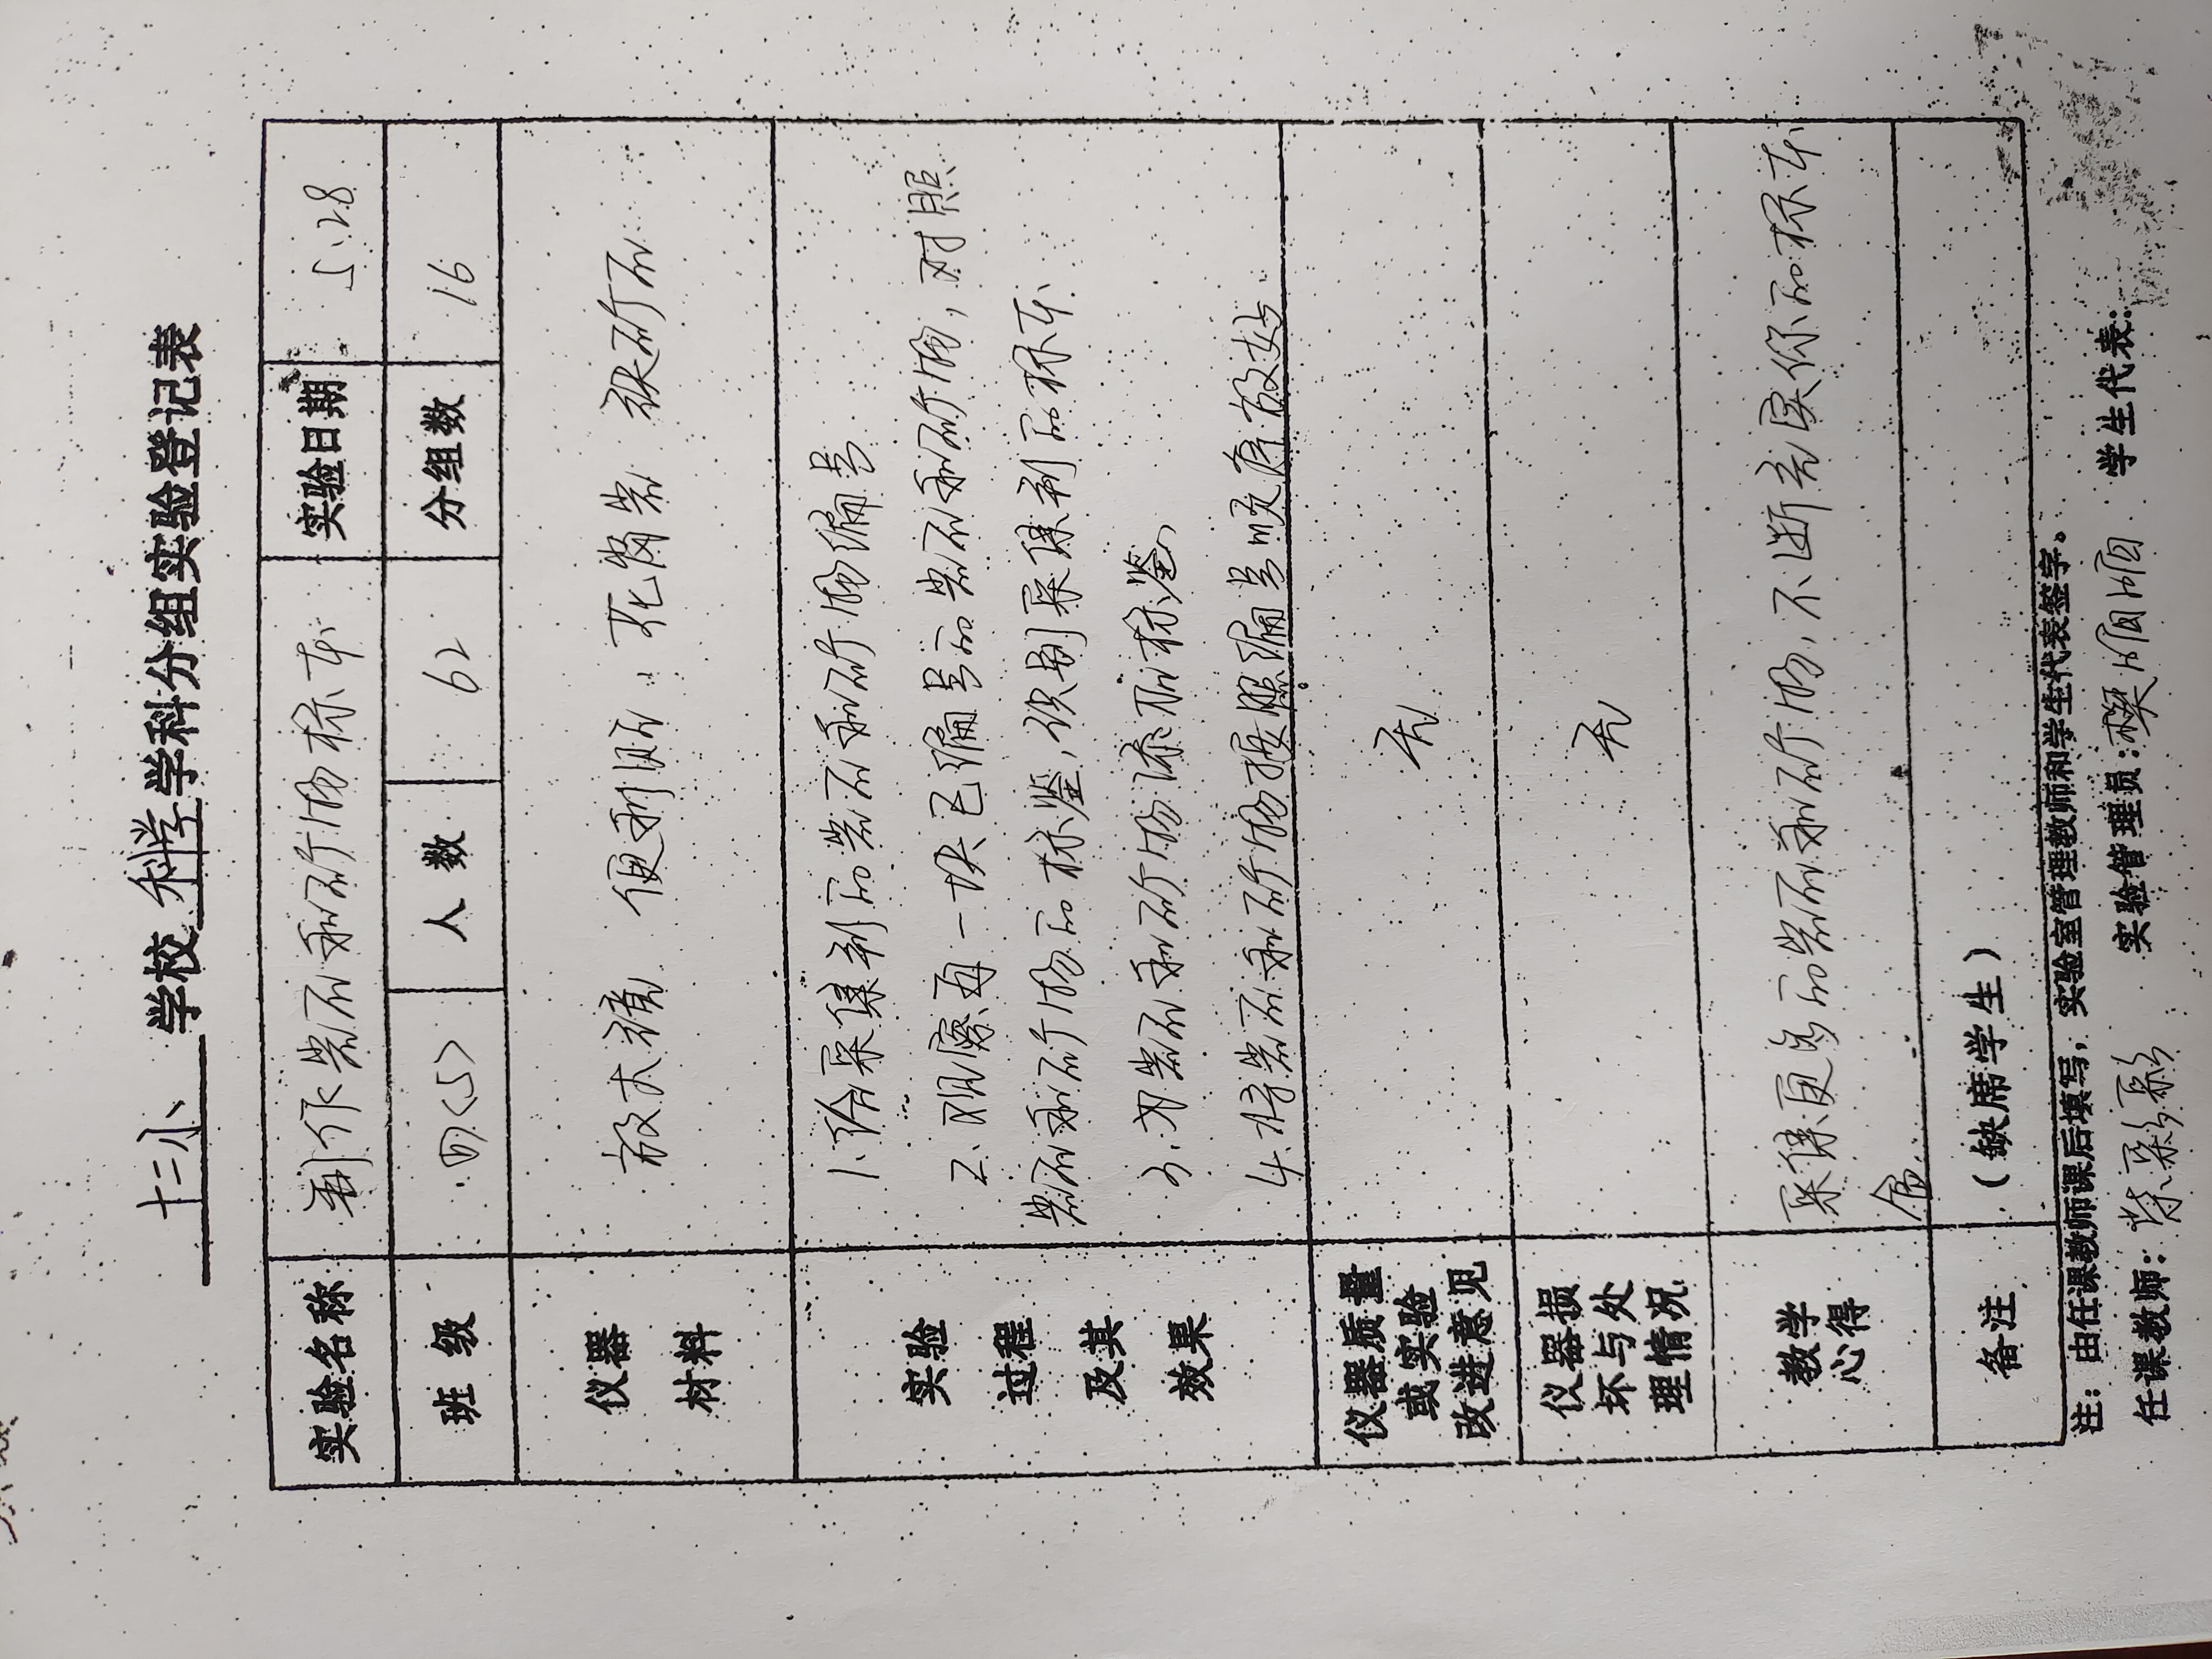 十二小 学校 科学 学科分组实验登记表
实验名称 制作岩石和矿物标本 实验日期 5.28
班 级 四<5> 人 数 62 分组数 16
仪器材料 放大镜 便利贴 花岗岩 铁矿石
实验过程及其效果
1.给采集到的岩石和矿物编号
2.观察每一块已编号的岩石和矿物,对照
岩石和矿物的标鉴,识别采集到的标本
3.为岩石和矿物添加标鉴
4.将岩石和矿物按照编号顺序放好
仪器质量或实验改进意见 无
仪器损坏与处理情况 无
教学心得 采集更多的岩石和矿物,不断充实你的标本
盒.
备注 (缺席学生)
注:由任课教师课后填写,实验室管理教师和学生代表签字。
任课教师: 实验管理员: 学生代表: